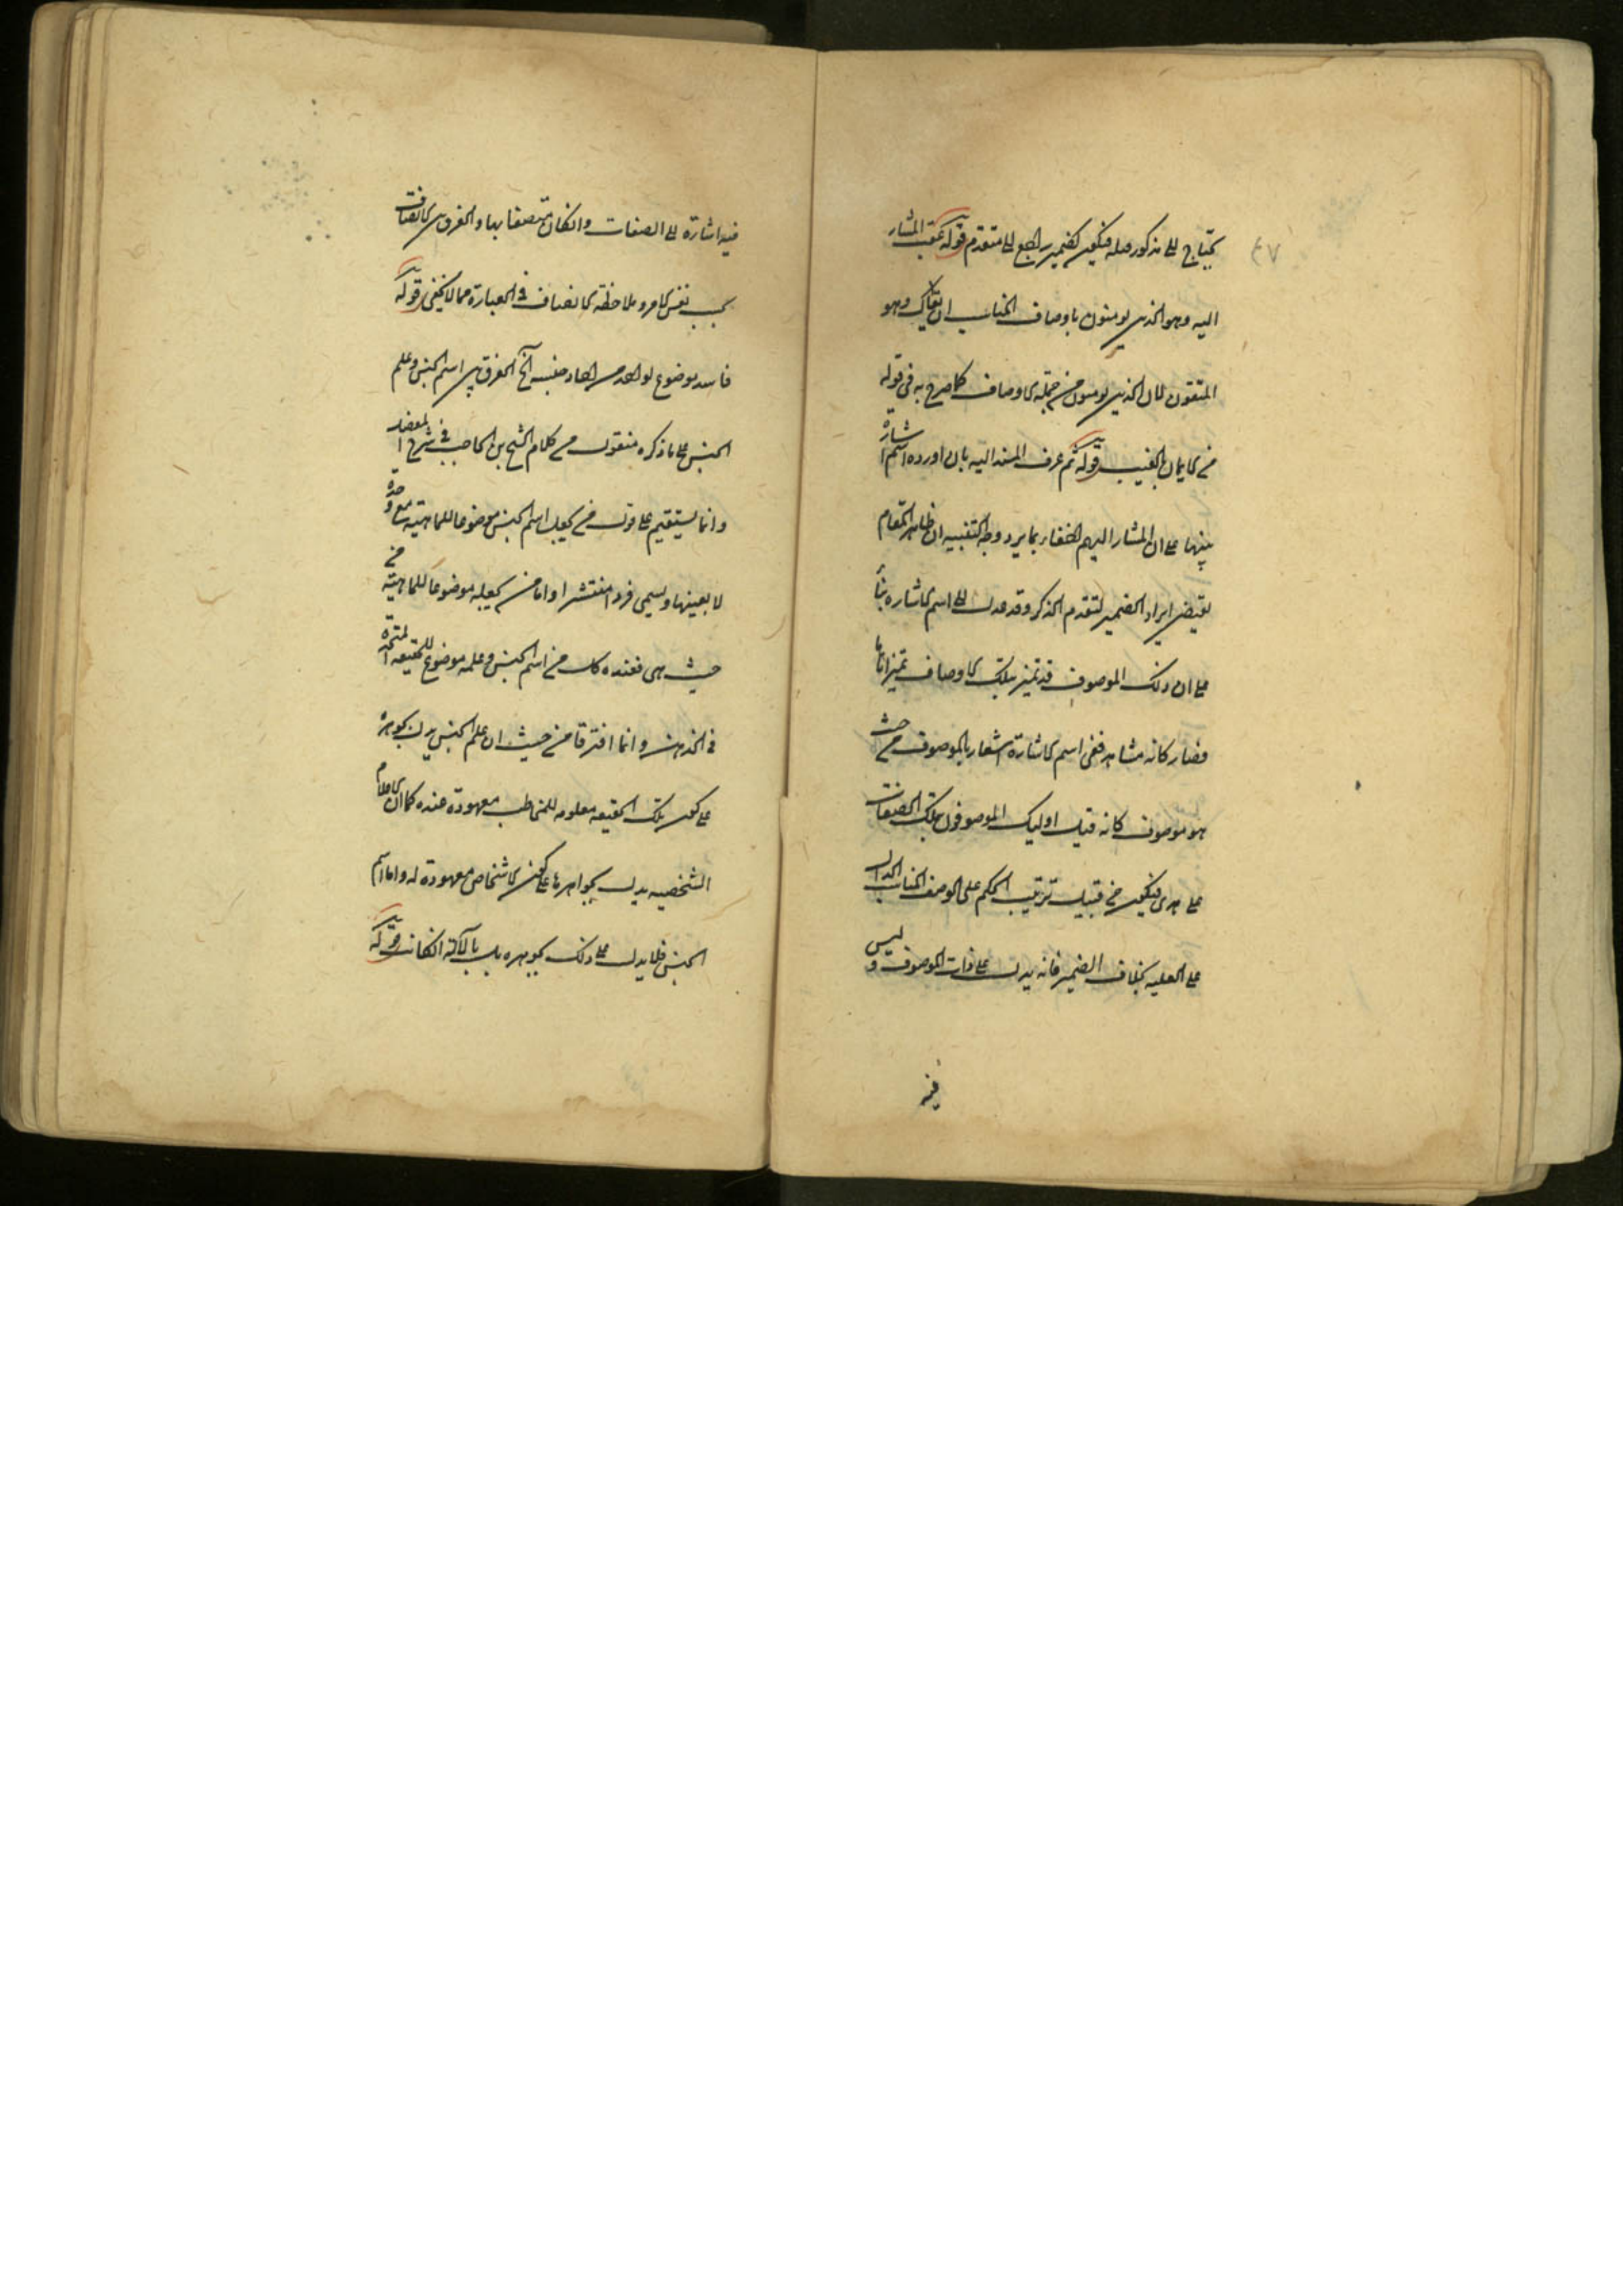 ٤٧
يحتاج الى مذكور قبله فيكون كضمير راجع الى متقدم قوله عقب المشار
اليه وهو الذين يومنون باوصاف المناسب ان يقال وهو
المتقون لان الذين يومنون من جملة الاوصاف كما صرح به فى قوله
من الايمان بالغيب قوله ثم عرف المسند اليه بان اورده اسم اشارة
تنبيها على ان المشار اليهم احقاء بما يرد وجه التنبيه ان ظاهر المقام
يقتضى ايراد الضمير لتقدم الذكر وقد عدل الى اسم الاشاره بناءً
على ان ذلك الموصوف قد تميز بتلك الاوصاف تميزا تاما
فصار كانه مشاهد ففى اسم الاشارة اشعار بالموصوف من حيث
هو موصوف كانه قيل اوليك الموصوفون بتلك الصفات
على هدى فيكون من قبيل ترتيب الحكم على الوصف المناسب الدال
على العليه بخلاف الضمير فانه يدل على ذات الموصوف و ليس
فيه
فيه اشارة الى الصفات وان كان متصفا بها والفرق بين الاتصاف
بحسب نفس الامر وملاحظة الاتصاف فى العبارة مما لا يخفى قوله
فاسد موضوع لواحد من احاد جنسه الخ الفرق بين اسم الجنس وعلم
الجنس على ما ذكره منقول من كلام الشيخ بن الحاجب فى شرح المفصل
وانما يستقيم على قول من يجعل اسم الجنس موضوعا للماهية مع وحدة
لا بعينها ويسمى فردا منتشرا واما من يجعله موضوعا للماهية من
حيث هى فعنده كل من اسم الجنس وعلمه موضوع للحقيقة المتحدة
فى الذهن وانما افترقا من حيث ان علم الجنس يدل بجوهره
على كون تلك الحقيقه معلومه للمخاطب معهودة عنده كما ان الاعلام
الشخصيه يدل بجواهرها على كون الاشخاص معهودة له واما اسم
الجنس فلا يدل على ذلك بجوهره بل بالآلة ان كانت قوله